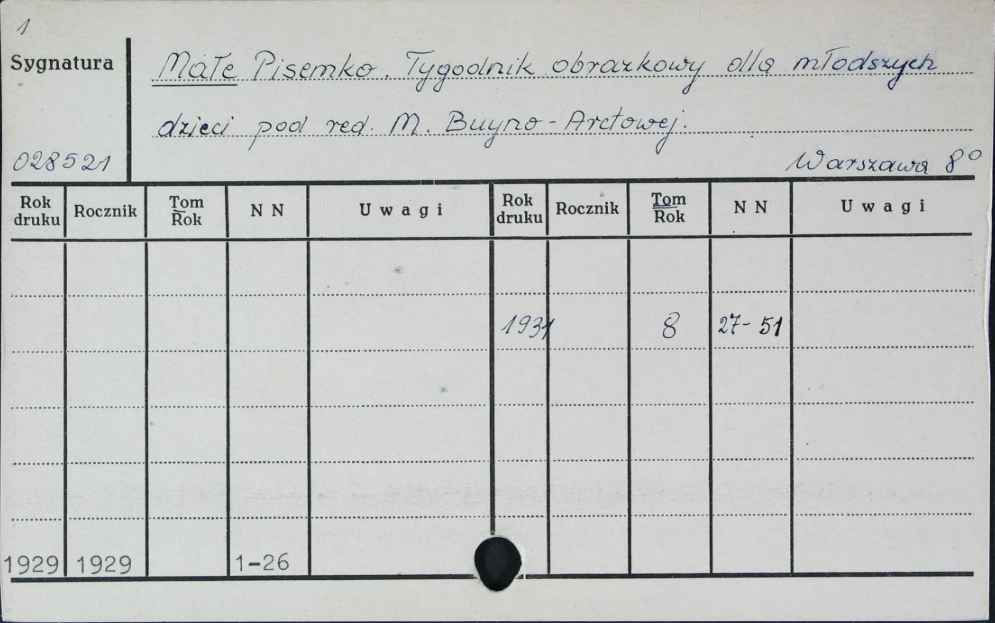 1
Sygnatura
Małe Pisemko. Tygodnik obrazkowy dla młodszych
dzieci pod red. M. Buyno-Arctowej.
028521
Warszawa 8°
Rok druku Rocznik Tom Rok NN Uwagi Rok druku Rocznik Tom Rok NN Uwagi
1931 8 27-51
1929 1929 1-26